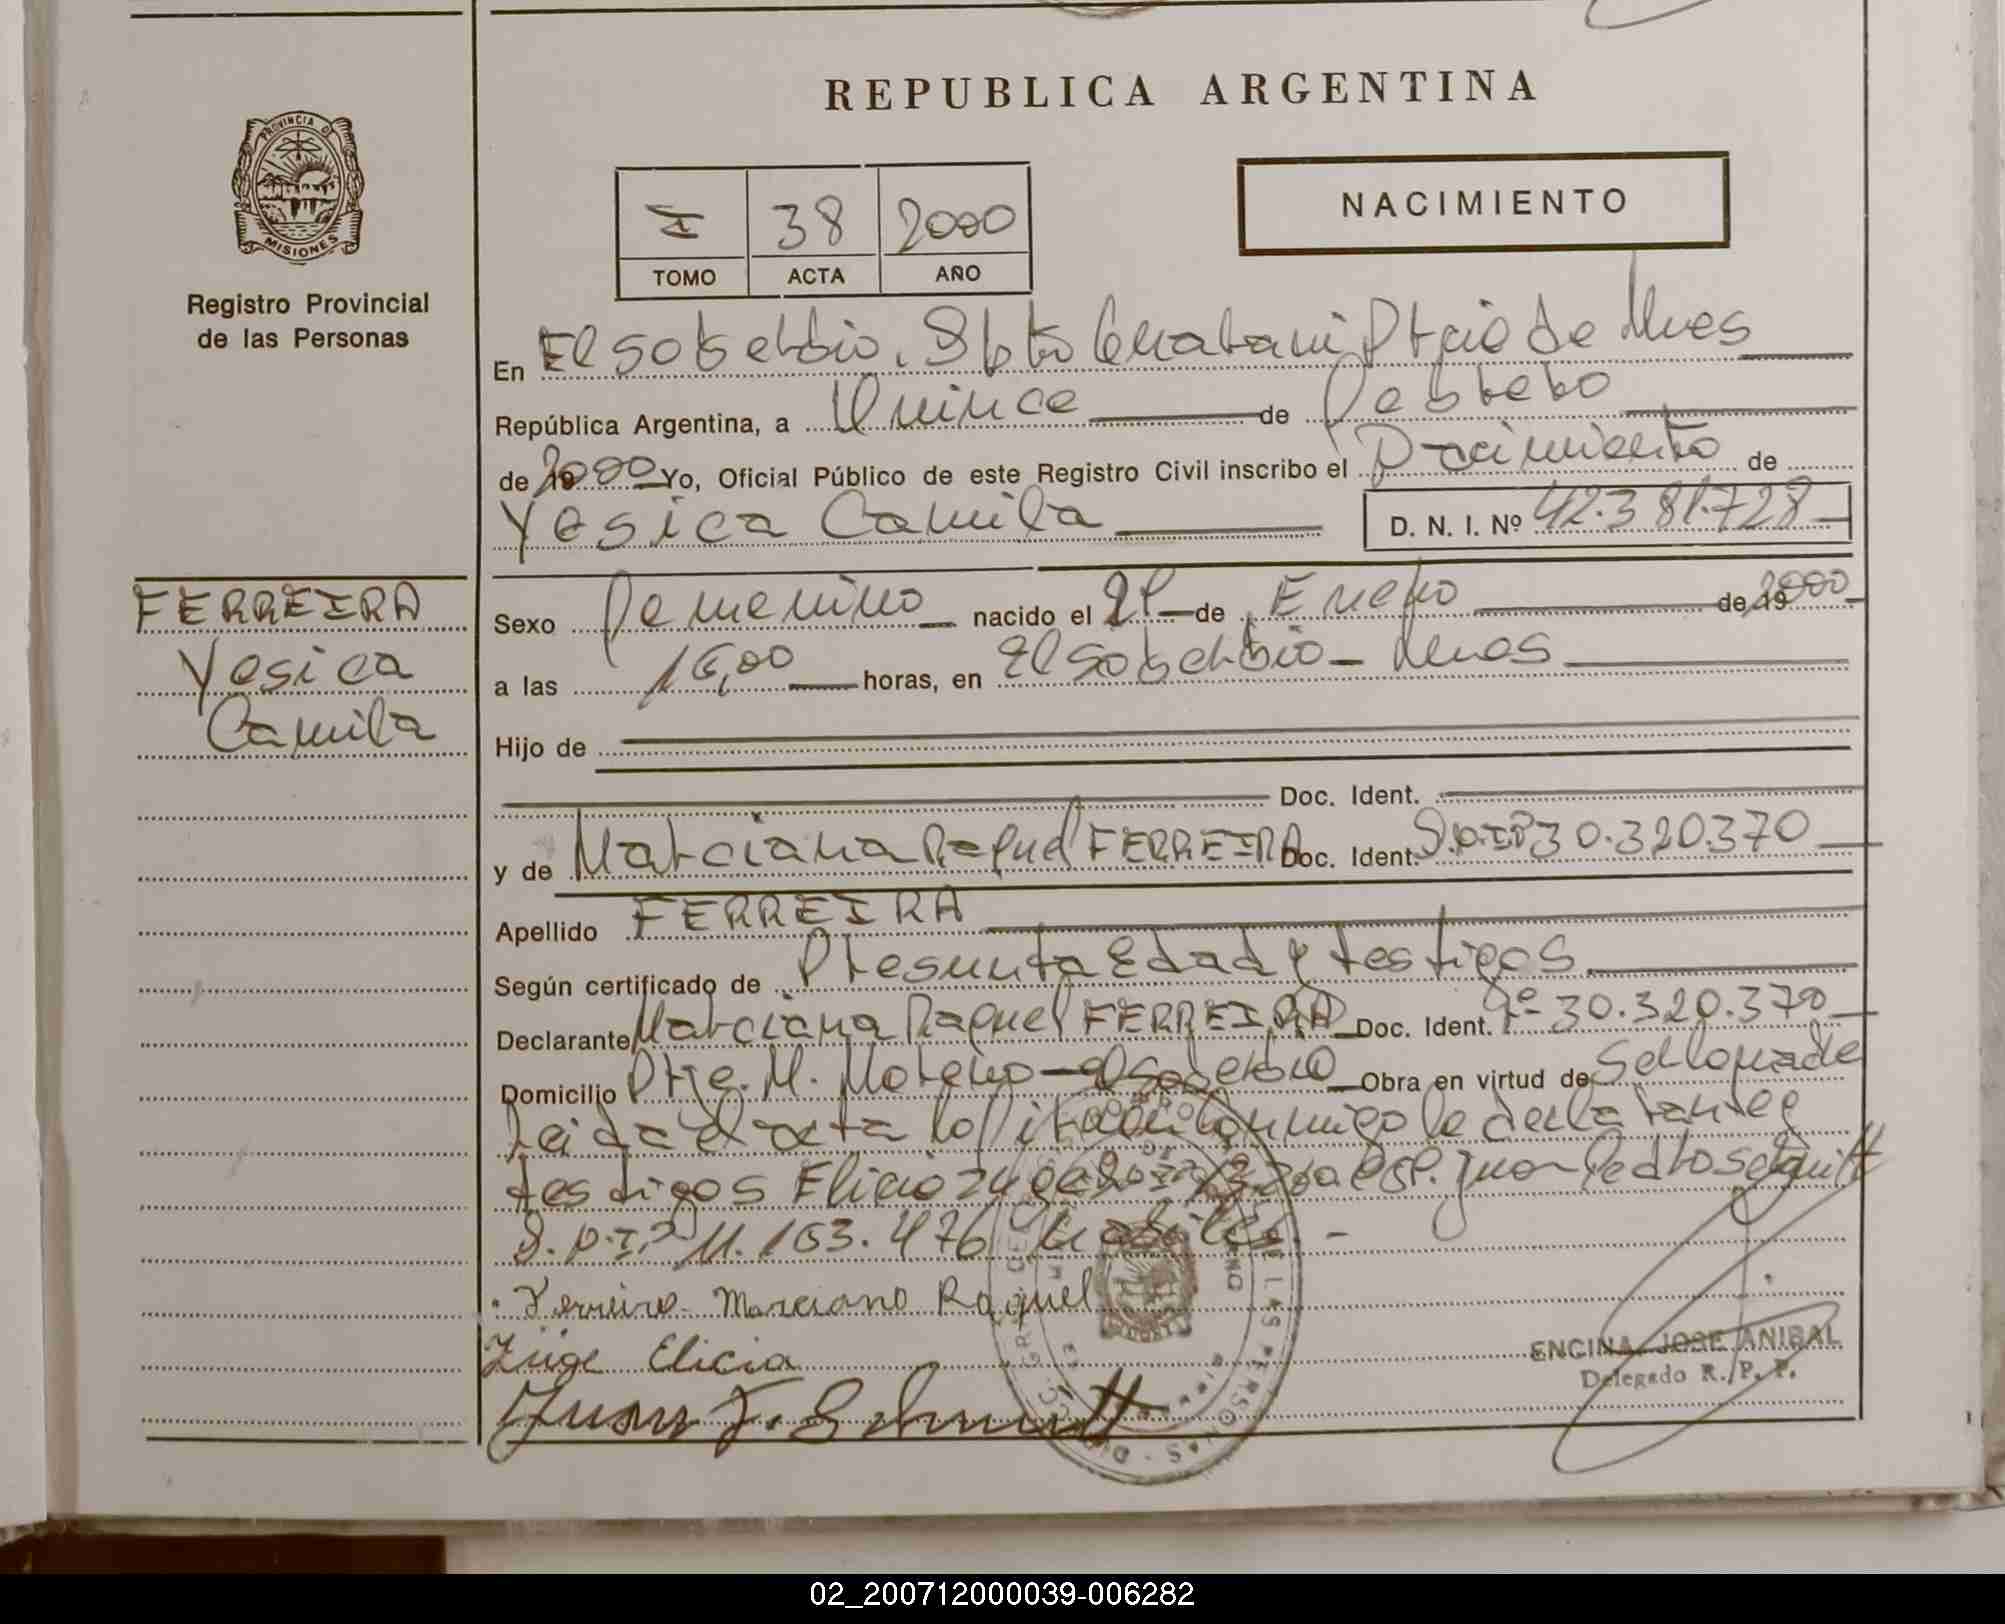 REPUBLICA ARGENTINA
PROVINCIA DE
MISIONES
Registro Provincial
de las Personas
I 38 2000
TOMO ACTA AÑO
NACIMIENTO
En El Soberbio, Dpto Guarani Pcia de Mnes
República Argentina, a Quince de Febrero
de 2000 Yo, Oficial Público de este Registro Civil inscribo el Nacimiento de
Yesica Camila D. N. I. Nº 42.381.728
FERREIRA
Yesica
Camila
Sexo Femenino nacido el 21 de Enero de 2000
a las 16,00 horas, en El Soberbio - Mnes
Hijo de
Doc. Ident.
y de Marciana Raquel FERREIRA Doc. Ident. D.N.I.Nº 30.320.370
Apellido FERREIRA
Según certificado de Presunta Edad y testigos
Declarante Marciana Raquel FERREIRA Doc. Ident. Nº 30.320.370
Domicilio Pje. M. Moreno - El Soberbio Obra en virtud de
Leida el acta la declarante
testigos Juan Pedro
D.N.I.Nº 11.163.476
Marciano Raquel
Elicia
ENCINA JOSE ANIBAL
Delegado R. P. P.
02_200712000039-006282